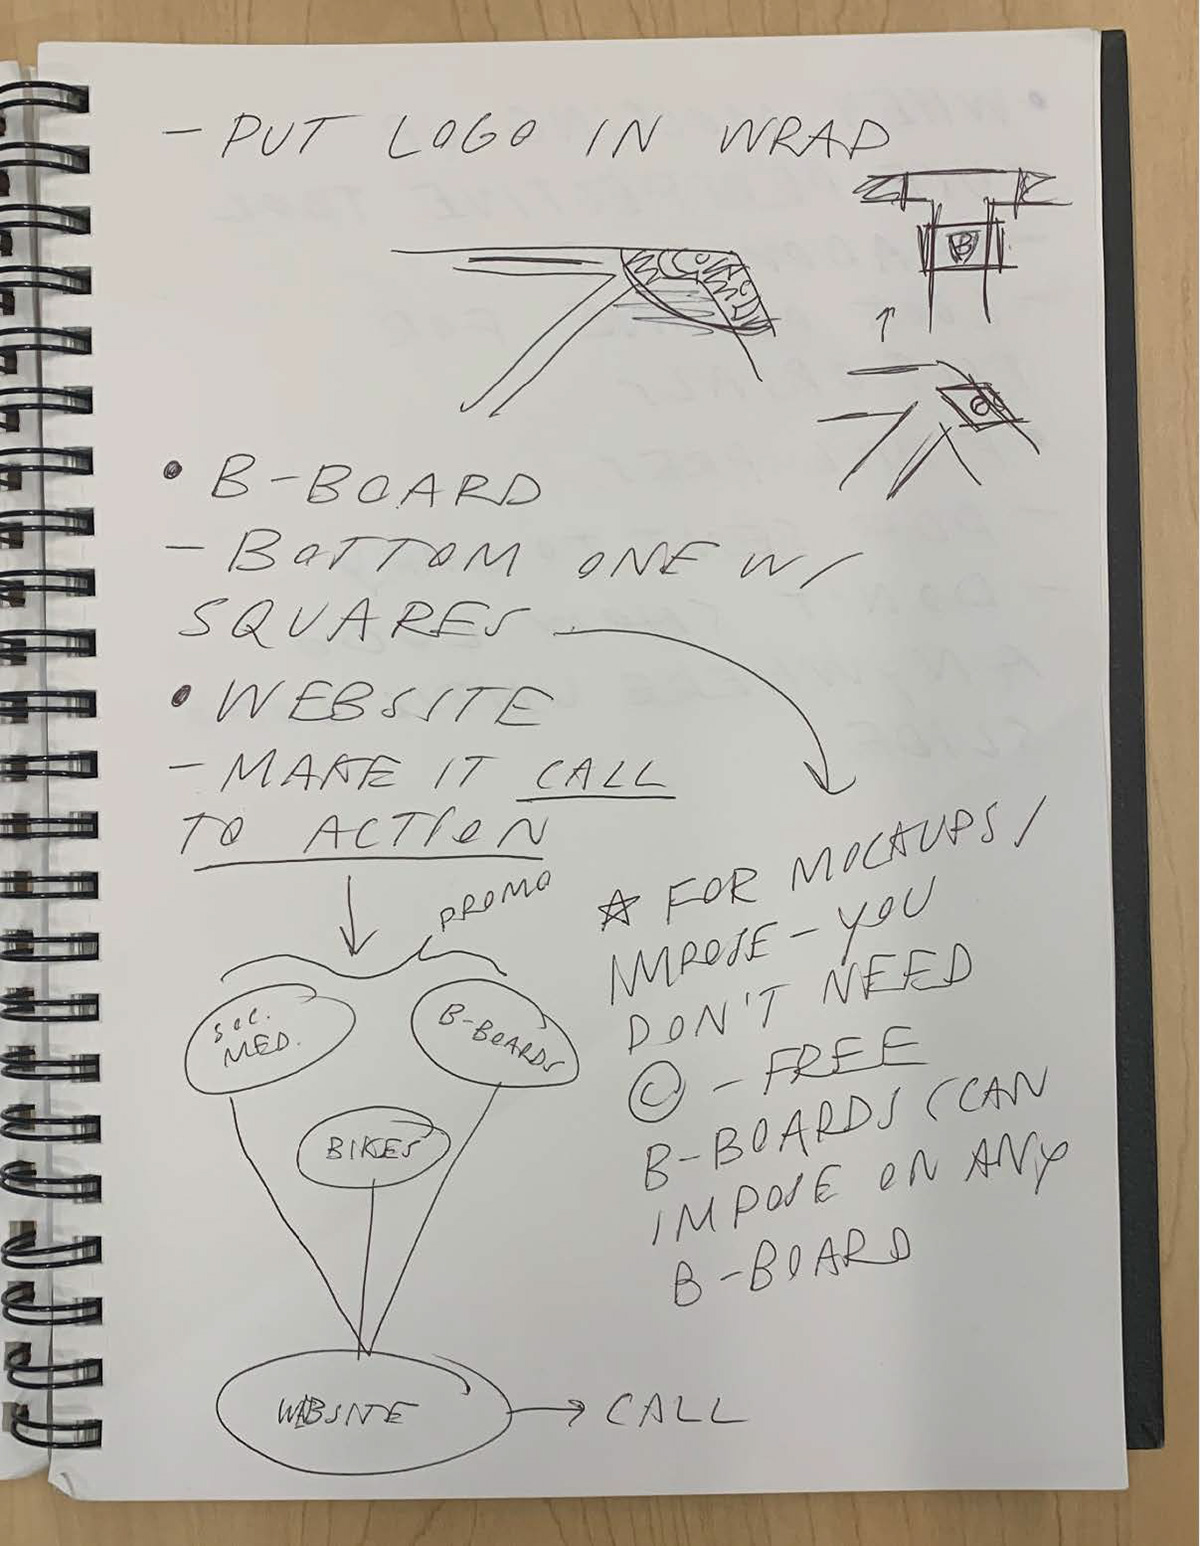 - PUT LOGO IN WRAP
B
• B-BOARD
- BOTTOM ONE W/
SQUARES
• WEBSITE
- MAKE IT CALL
TO ACTION
PROMO
SOC.
MED.
B-BOARDS
BIKES
WEBSITE
→ CALL
☆ FOR MOCKUPS/
IMPOSE - YOU
DON'T NEED
© - FREE
B-BOARDS (CAN
IMPOSE ON ANY
B-BOARD